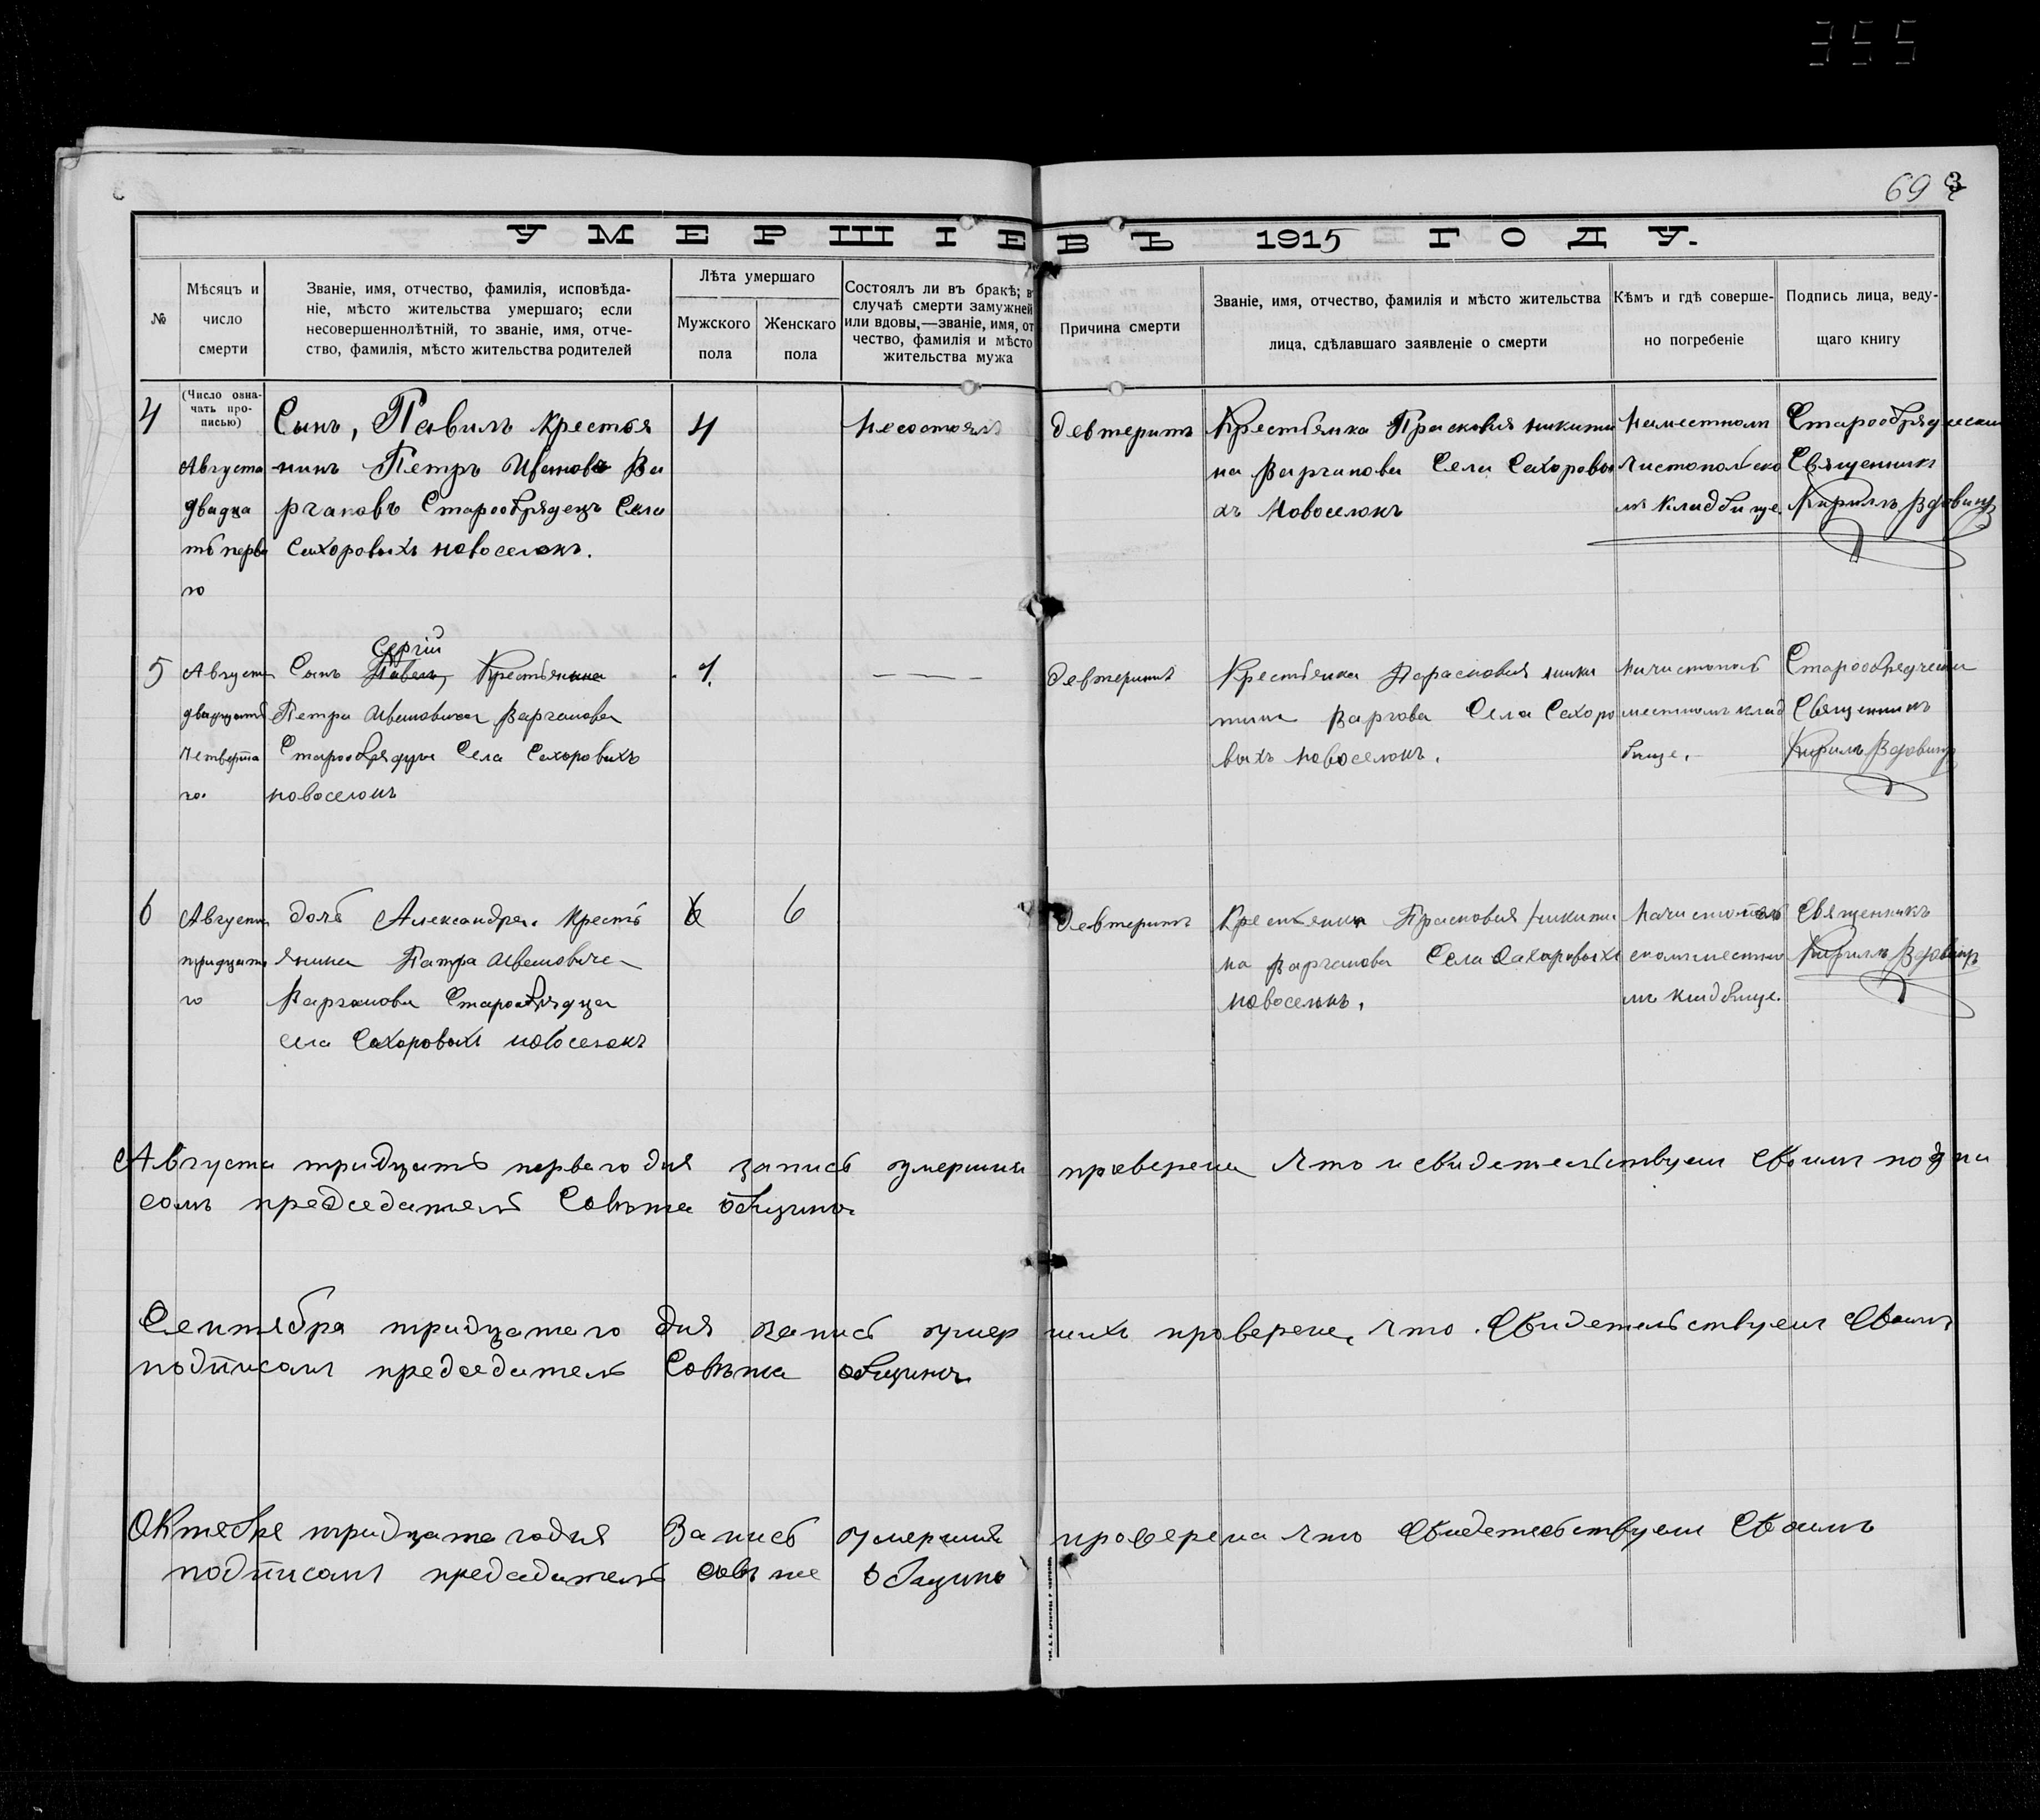 355
69 3
УМЕРШІЕВЪ 1915 ГОДУ.
№
Мѣсяцъ и
число
смерти
Званіе, имя, отчество, фамилія, исповѣда-
ніе, мѣсто жительства умершаго; если
несовершеннолѣтній, то званіе, имя, отче-
ство, фамилія, мѣсто жительства родителей
Лѣта умершаго
Мужского
пола
Женскаго
пола
Состоялъ ли въ бракѣ; въ
случаѣ смерти замужней
или вдовы,—званіе, имя, от
чество, фамилія и мѣсто
жительства мужа
Причина смерти
Званіе, имя, отчество, фамилія и мѣсто жительства
лица, сдѣлавшаго заявленіе о смерти
Кѣмъ и гдѣ соверше-
но погребеніе
Подпись лица, веду-
щаго книгу
4
(Число озна-
чать про-
писью)
Августа
двадца
ть перва
го
Сынъ, Павилъ крестья
нинъ Петръ Ивановъ Ва
ргановъ Старообрядецъ Села
Сахоровыхъ новоселокъ.
4
Несостоялъ
девтеритъ
Крестьянка Прасковия никити
на Варганова Села Сахоровы
хъ Новоселокъ
Наместном
Чистопольско
мъ Кладбище.
Старообрядчески
Священник
Кирилъ Вдовинъ
5
Августа
двадцать
четверта
го.
Сергій
Сынъ Павелъ, Крестьянина
Петра Ивановича Варганова
Старообрядца Села Сахоровыхъ
новоселокъ
1.
———
девтеритъ
Крестьянка Парасковия ники
тина Варгова Села Сахоро
выхъ новоселокъ.
Начистопол
местномъ клад
бище.
Старообрядчески
Священникъ
Кирилъ Вдовинъ
6
Августа
тридцата
го
дочь Александра. Кресть
янина Патра Ивановича
Варганова Старообрядца
села Сахоровыхъ новоселокъ
6
6
девтеритъ
Крестьянка Прасковия никити
на Варганова Села Сахаровыхъ
новоселокъ.
Начистополь
скомместно
мъ кладбище.
Священникъ
Кирилъ Вдовинъ
Августа тридцать первого дня запись умерших проверена что и свидетельствуем своим подпи
сомъ председатель Совѣта общины
Сентября тридцатаго дня запись умер ших проверена, что свидетельствуем Своим
подписом председатель Совѣта общины
Октября тридцатагодня Запись умерших проверена что свидетельствуем своимъ
подписом председатель совѣта общины